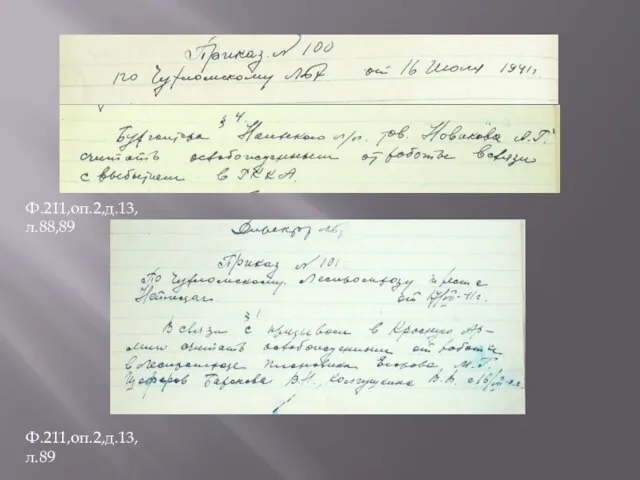 Приказ N 100
по Чухломскому ЛПХ от 16 Июля 1941 г.
§ 4.
Бухгалтера л/п. тов. Новикова А.Г.
считать освобожденным от работы в связи
с выбытием в РККА.
Ф.211,оп.2,д.13,
л.88,89
Директор
Приказ N 101
По Чухломскому Леспромхозу треста
от
§ 1
В связи с призывом в Красную Ар-
мию считать освобожденными от работы
в леспромхозе плановика Егорова, М.Г.
Шоферов Баранова В.Н., Колгушкина В.В. с 16/VII с.г.
Ф.211,оп.2,д.13,
л.89